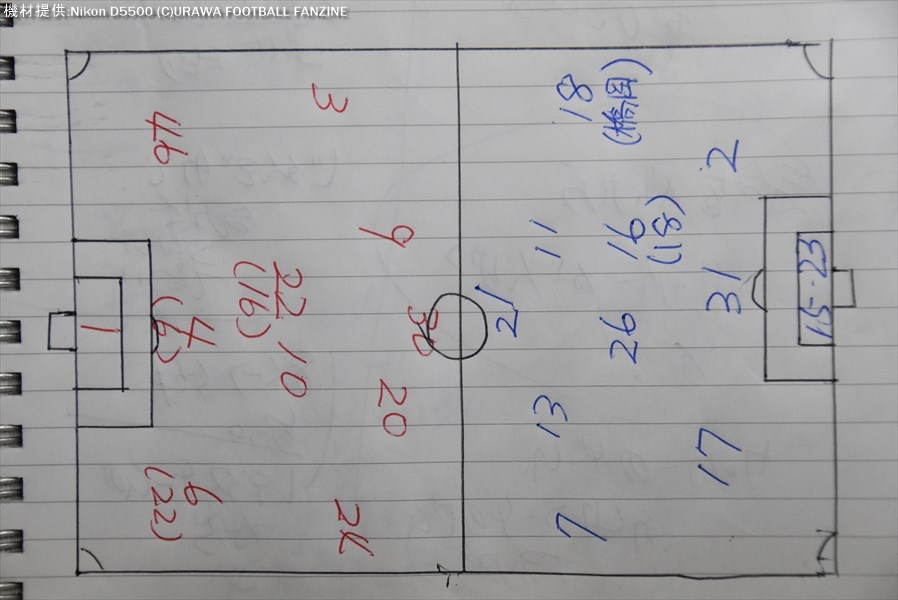 機材提供:Nikon D5500 (C)URAWA FOOTBALL FANZINE
3
46
9
22
(16)
4
(6)
1
10
20
6
(22)
18
(橋岡)
2
11
16
(18)
31
15-23
21
26
13
17
7